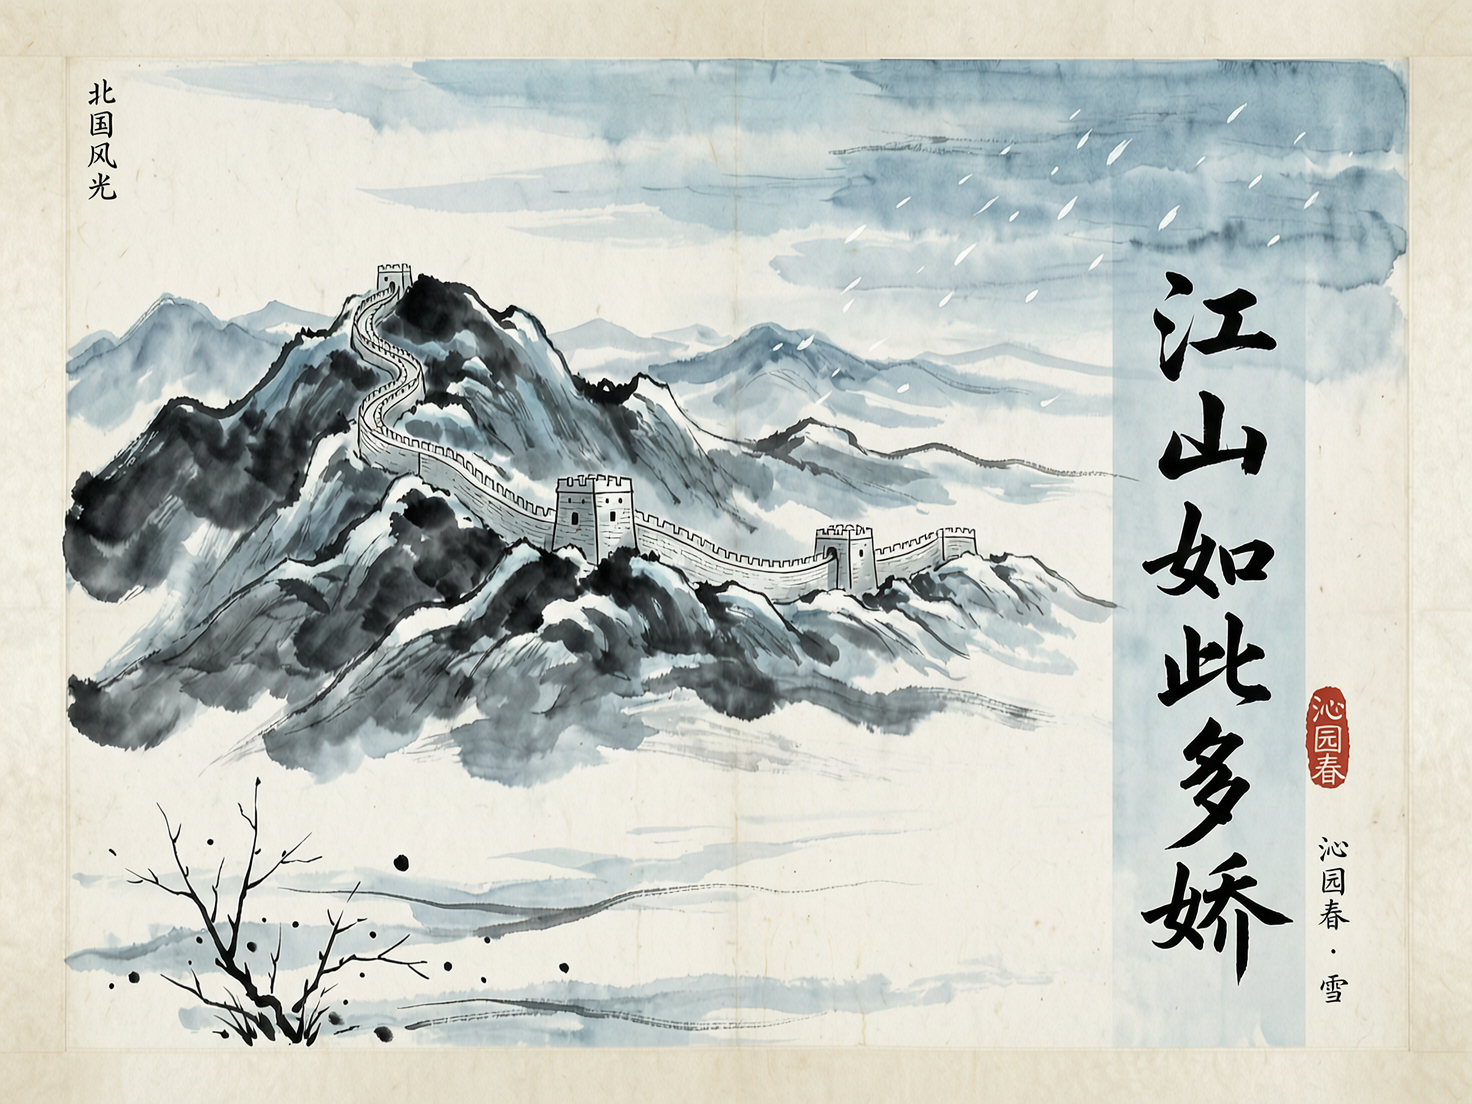 北国风光
江山如此多娇
沁园春
沁园春·雪